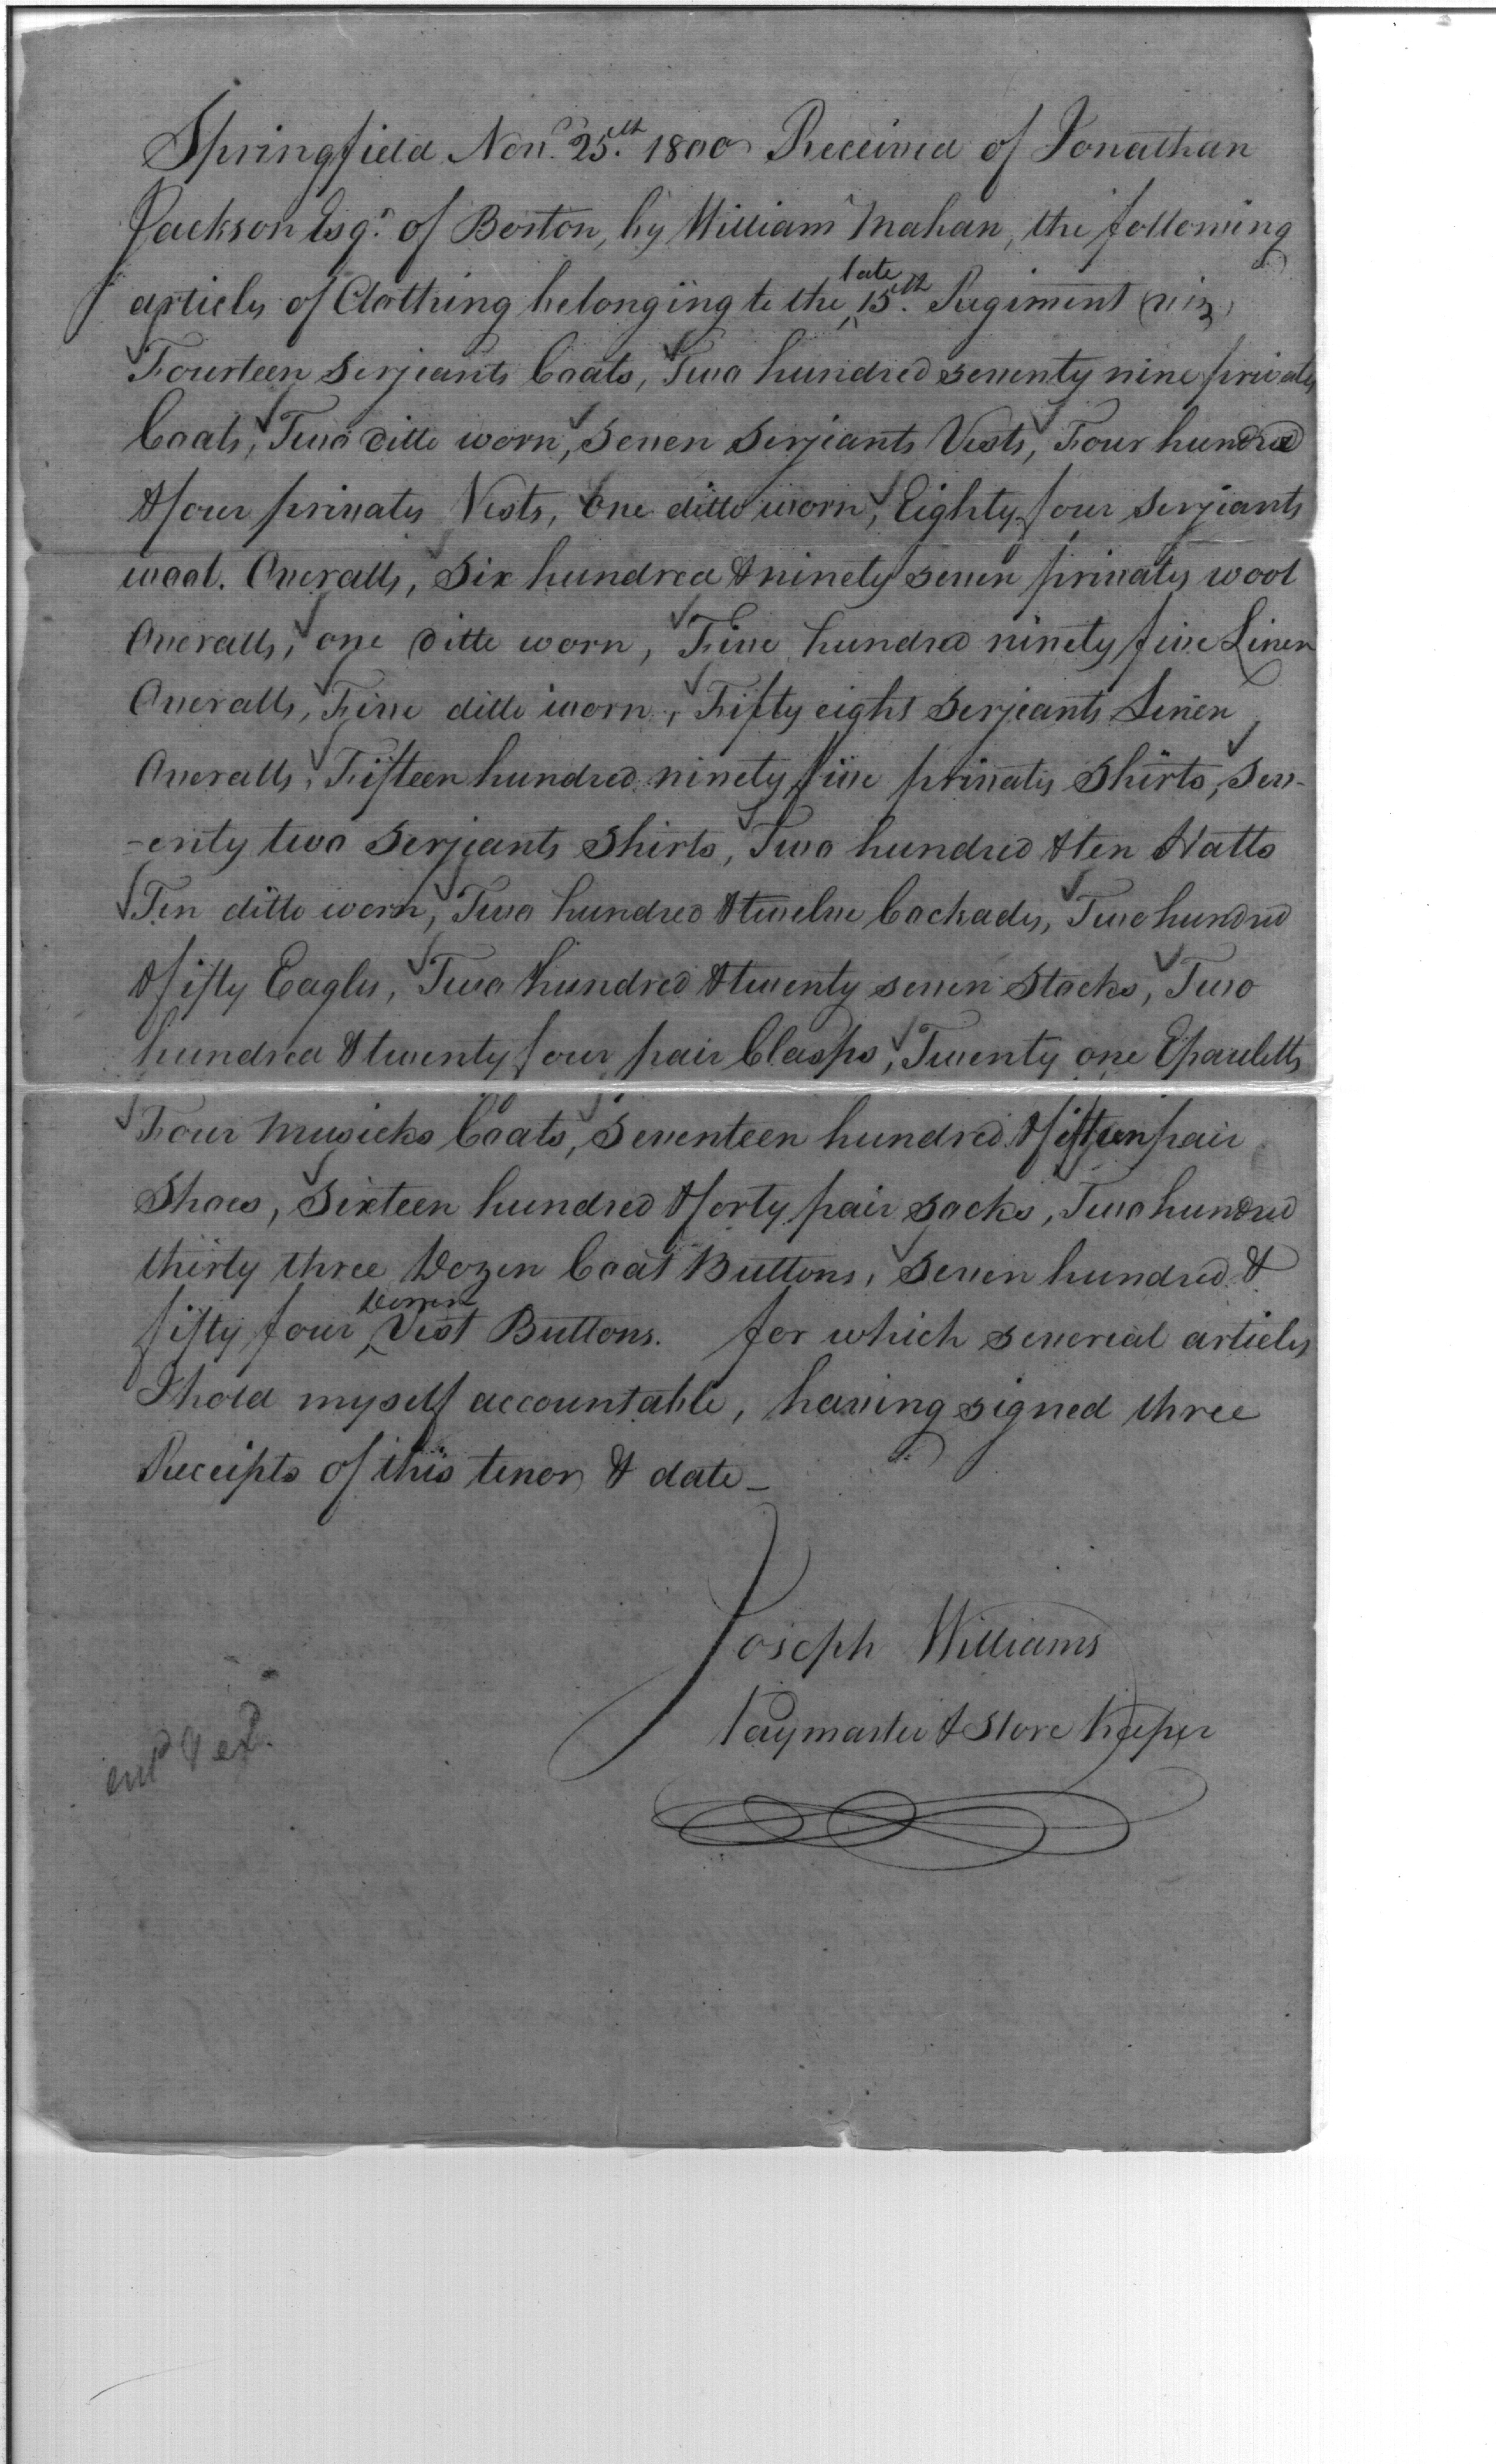 Springfield Novr. 25.th 1800 Received of Jonathan
Jackson Esqr. of Boston, by William Mahan, the following
articles of Clothing belonging to the late 15.th Regiment (viz)
Fourteen Serjeants Coats, Two hundred seventy nine privates
Coats, Two ditto worn, Seven Serjeants Vests, Four hundred
& four privates Vests, One ditto worn, Eighty four Serjeants
wool. Overalls, Six hundred & ninety seven privates wool
Overalls, one ditto worn, Five hundred ninety five Linen
Overalls, Five ditto worn, Fifty eight Serjeants Linen
Overalls, Fifteen hundred ninety five privates Shirts, Sev-
-enty two Serjeants Shirts, Two hundred & ten Hatts
Ten ditto worn, Two hundred & twelve Cockades, Two hundred
& fifty Eagles, Two hundred & twenty seven Stocks, Two
hundred & twenty four pair Clasps, Twenty one Epauletts
Four Musicks Coats, Seventeen hundred & fifteen pair
Shoes, Sixteen hundred & forty pair socks, Two hundred
thirty three Dozen Coat Buttons, Seven hundred &
fifty four Dozen Vest Buttons. for which severial articles
I hold myself accountable, having signed three
Receipts of this tenor & date_
Joseph Williams
Paymaster & Store Keeper
entd & exd.